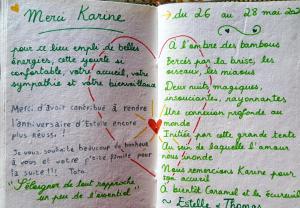 Merci Karine
pour ce lieu empli de belles
énergies, cette yourte si
confortable, votre accueil, votre
sympathie et votre bienveillance
Merci d'avoir contribué à rendre
l'anniversaire d'Estelle encore
plus réussi !
Je vous souhaite beaucoup de bonheur
à vous et votre p'tite famille pour
la suite !!! Toto.
"S'éloigner de tout rapproche
un peu de l'essentiel"
→ du 26 au 28 mai
A l'ombre des bambous
Bercés par la brise, les
oiseaux, les mïaous
Deux nuits magiques,
insouciantes, rayonnantes
Une connexion profonde au
monde
Initiée par cette grande tente
Au sein de laquelle l'amour
nous inonde
Nous remercions Karine pour
son accueil
A bientôt Caramel et les écureuils
~ Estelle & Thomas